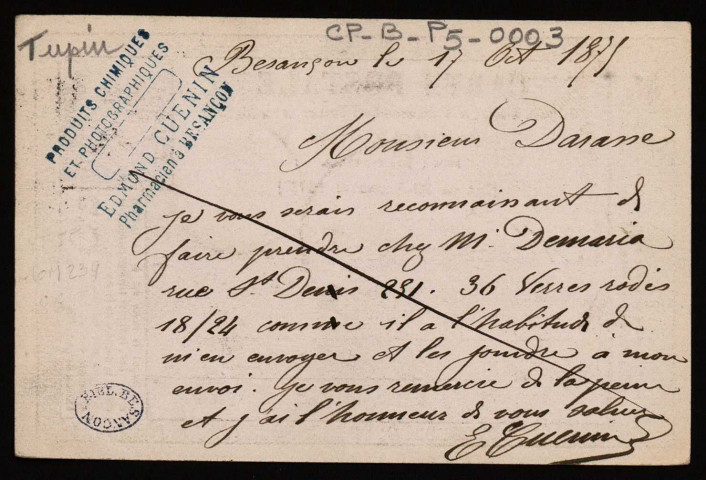 Tupin
CP-B-P5-0003
PRODUITS CHIMIQUES
ET PHOTOGRAPHIQUES
EDMOND CUENIN
Pharmacien à BESANÇON
Besançon le 17 Oct 1875
Monsieur Darasse
je vous serais reconnaissant de
faire prendre chez M. Demaria
rue St Denis 231. 36 Verres rodés
18/24 comme il a l'habitude de
m'en envoyer et les joindre à mon
envoi. Je vous remercie de la peine
et j'ai l'honneur de vous saluer
E Cuenin
BIBL. BESANÇON